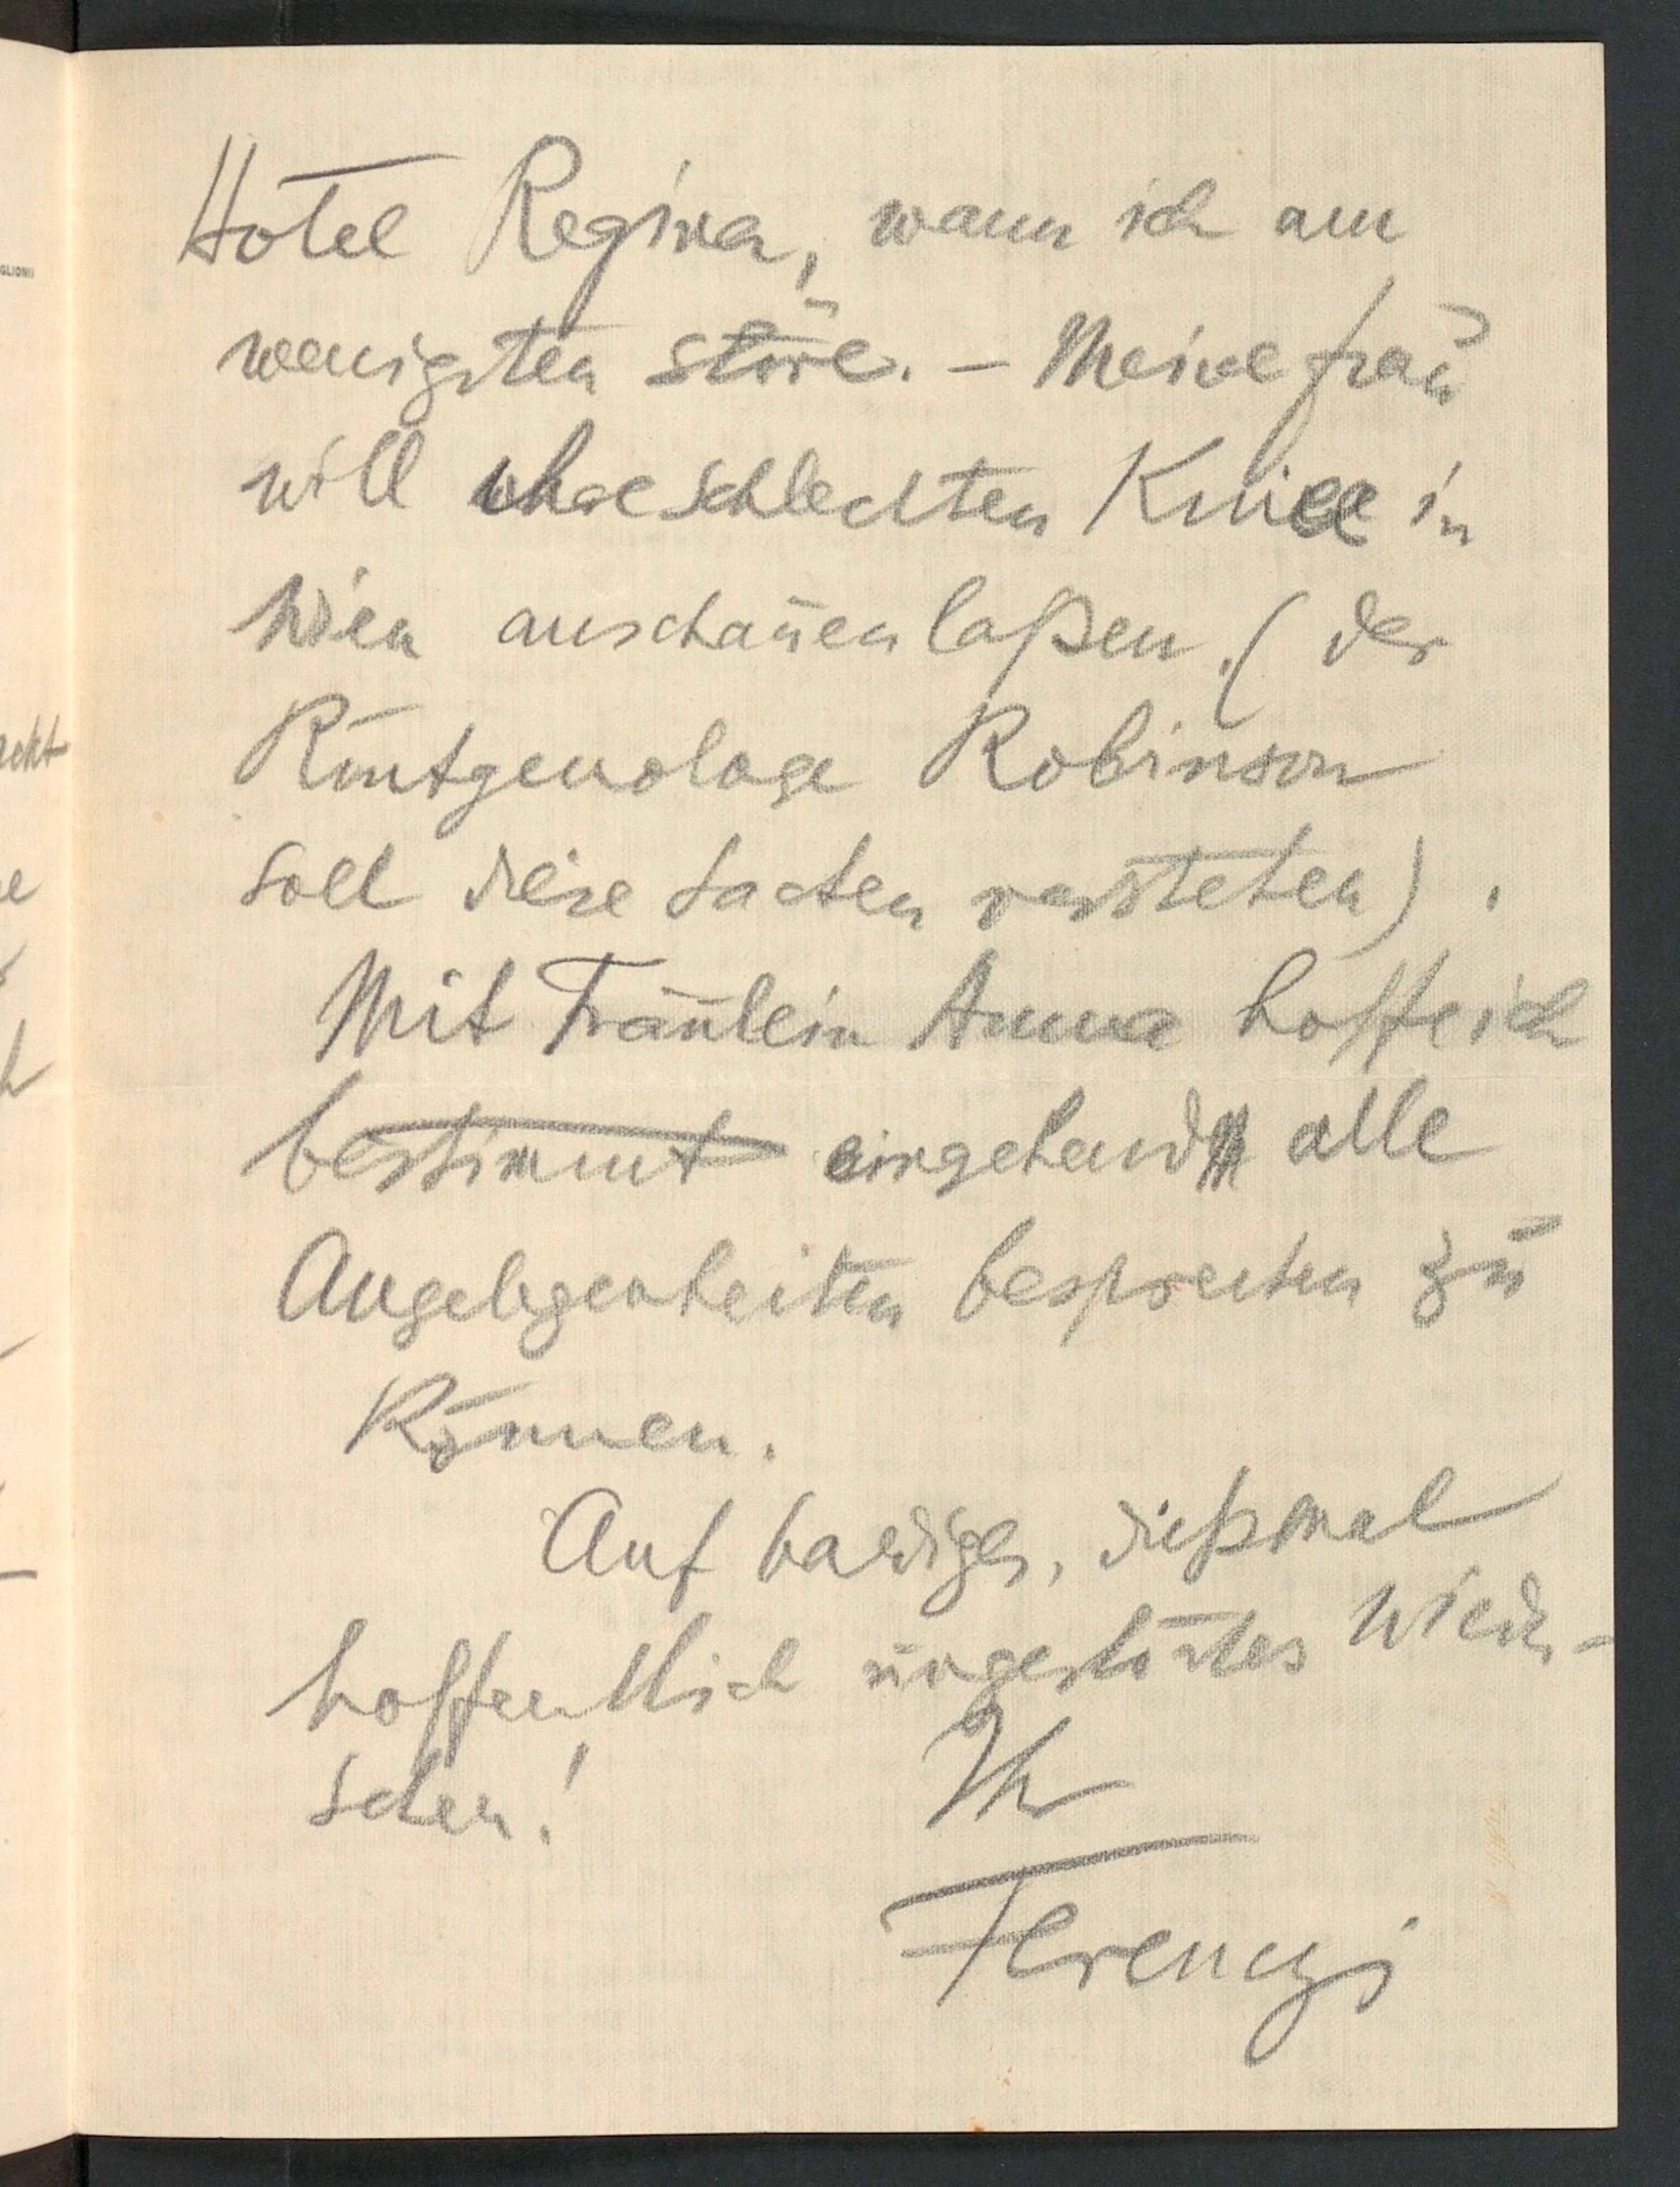 Hotel Regina, wann ich am
wenigsten störe. – Meine Frau
will ihre schlechten Kniee in
Wien anschauen laßen. (Der
Röntgenologe Robinson
soll diese Sachen verstehen).
Mit Fräulein Anna hoffe ich
bestimmt eingehend alle
Angelegenheiten besprechen zu
können.
Auf baldiges, dießmal
hoffentlich ungestörtes Wieder-
sehen!
Ihr
Ferenczi